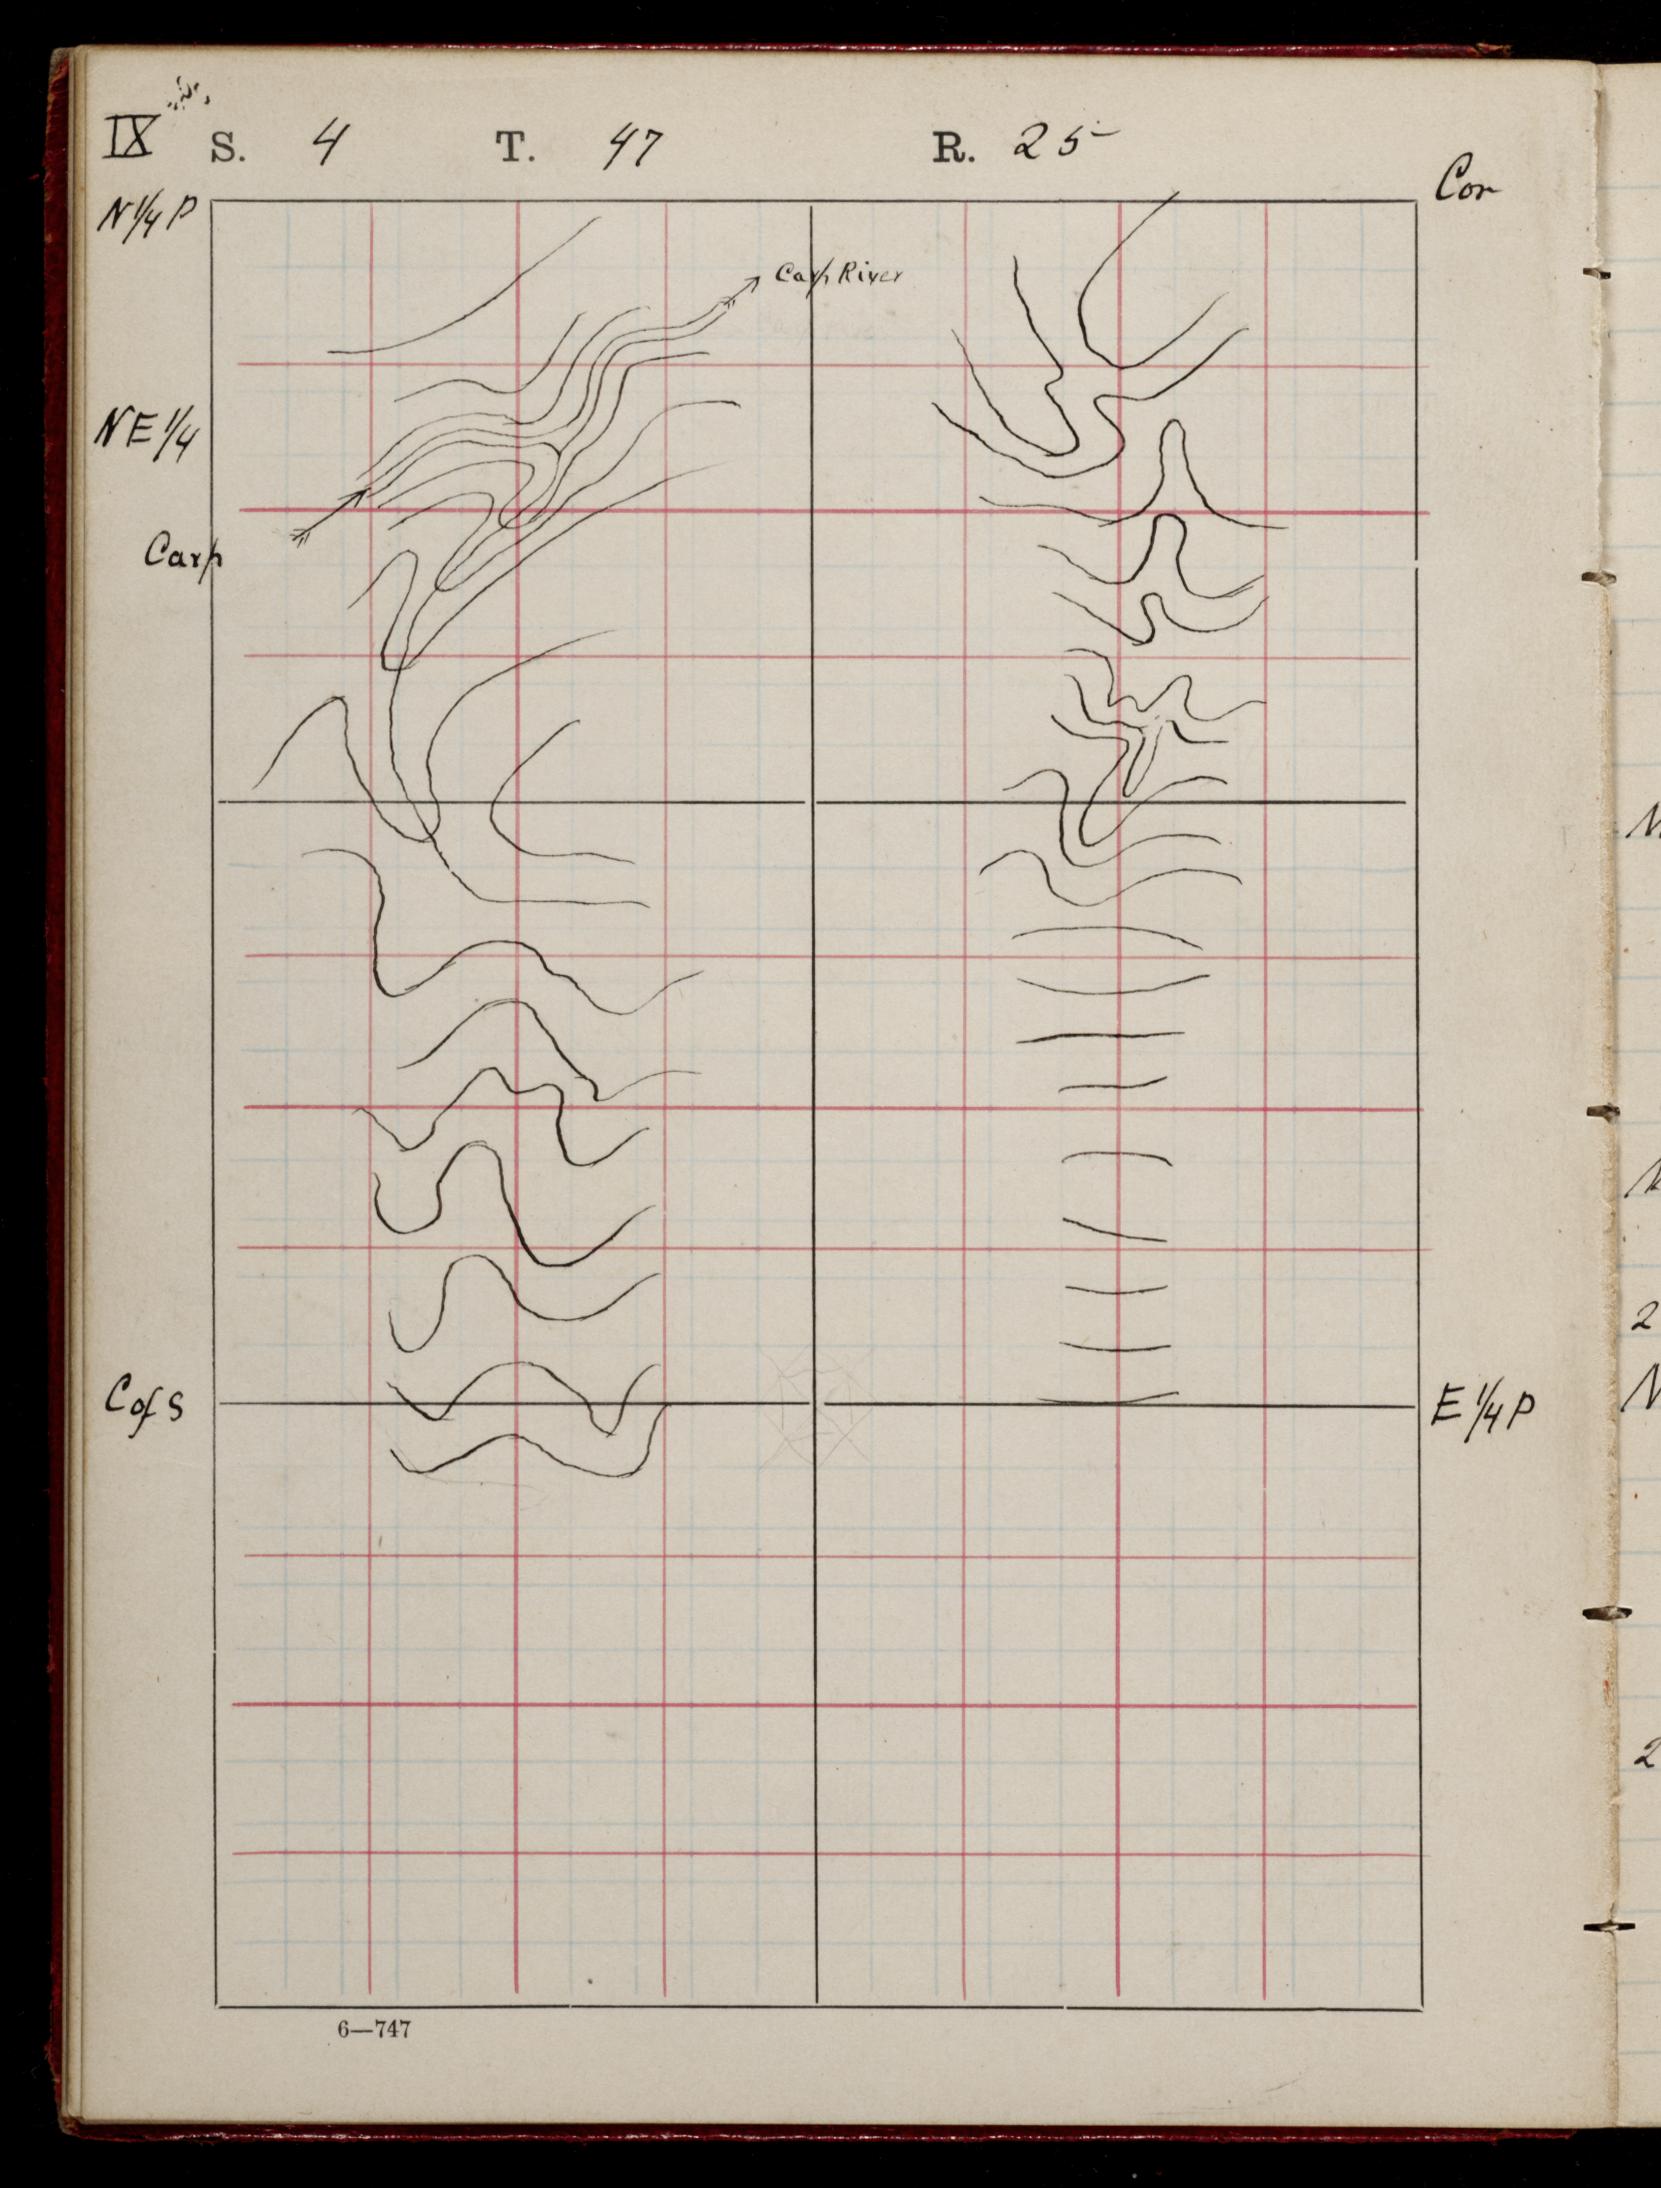 IX S. 4 T. 47 R. 25
N 1/4 P Cor
Carp River
NE 1/4
Carp
N
N
2
C of S E 1/4 P N
2
6—747